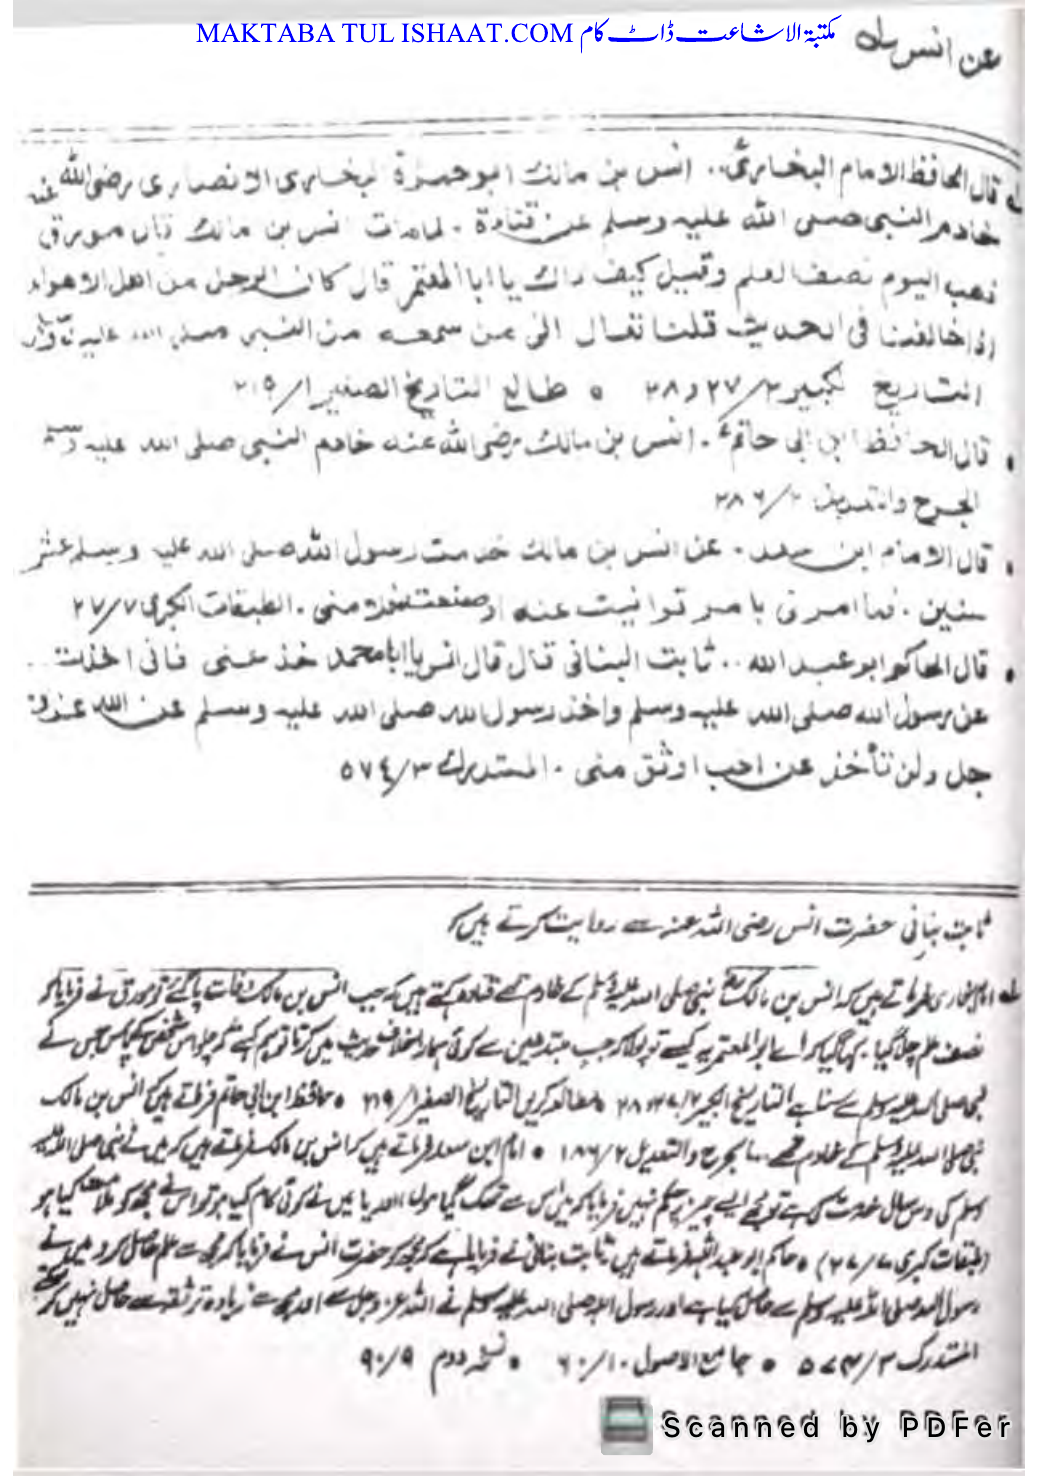 MAKTABA TUL ISHAAT.COM مکتبۃ الاشاعت ڈاٹ کام
عن انس
قال الحافظ الامام البخاری.. انس بن مالك ابو حمزة البخاری الانصاری رضی الله عنه
خادم النبی صلی الله علیه وسلم عن قتادة . لمامات انس بن مالك قال مورق
ذهب اليوم نصف العلم وقيل كيف ذاك يا ابا المعتمر قال كان الرجل من اهل الاهواء
اذا خالفنا فی الحدیث قلنا تعال الی من سمعه من النبی صلی الله علیه
التاریخ الکبیر ۲/۲۷ و ۲۸ ● طالع التاریخ الصغیر ۱/۲۱۵
قال الحافظ ابن ابی حاتم . انس بن مالك رضی الله عنه خادم النبی صلی الله علیه وسلم
الجرح والتعدیل ۲/۲۸۶
قال الامام ابن سعد . عن انس بن مالك خدمت رسول الله صلی الله علیه وسلم عشر
سنین . فما امرنی بامر توانیت عنه او منی . الطبقات الکبری ۷/۲۷
قال الحاکم ابو عبد الله .. ثابت البنانی قال قال انس یا ابا محمد خذ عنی فانی اخذت ..
عن رسول الله صلی الله علیه وسلم واخذ رسول الله صلی الله علیه وسلم عن الله عز و
جل ولن تأخذ عن احد اوثق منی . المستدرك ۳/۵۷٤
ثابت بنانی حضرت انس رضی اللہ عنہ سے روایت کرتے ہیں کہ
امام بخاری فرماتے ہیں کہ انس بن مالک نبی صلی اللہ علیہ وسلم کے خادم تھے قتادہ کہتے ہیں کہ جب انس بن مالک وفات پاگئے تو مورق نے فرمایا کہ
نصف علم چلا گیا کہا گیا کہ اے ابوالمعتمر یہ کیسے تو بولا کہ جب مبتدعین سے کوئی ہمارا خلاف حدیث میں کرتا تو ہم کہتے کہ چلو اس شخص کے پاس جس نے
نبی صلی اللہ علیہ وسلم سے سنا ہے التاریخ الکبیر ۲/۲۷، ۲۸ ● مطالعہ کریں التاریخ الصغیر ۱/۲۱۹ ● حافظ ابن ابی حاتم فرماتے ہیں کہ انس بن مالک
نبی صلی اللہ علیہ وسلم کے خادم تھے . الجرح والتعدیل ۲/۱۸۶ ● امام ابن سعد فرماتے ہیں کہ انس بن مالک فرماتے ہیں کہ میں نے نبی صلی اللہ علیہ
وسلم کی دس سال خدمت کی ہے تو مجھے ایسے چیز پر حکم نہیں فرمایا کہ میں اس سے تھک گیا ہوں اور یا میں نے کوئی کام کیا ہو تو اس نے مجھ کو ملامت کیا ہو
(طبقات کبری ۷/۲۷) ● حاکم ابو عبداللہ فرماتے ہیں ثابت بنانی نے فرمایا ہے کہ مجھ کو حضرت انس نے فرمایا کہ مجھ سے علم حاصل کرو میں نے
رسول اللہ صلی اللہ علیہ وسلم سے حاصل کیا ہے اور رسول اللہ صلی اللہ علیہ وسلم نے اللہ عز وجل سے اور مجھ سے زیادہ تر ثقہ سے حاصل نہیں کر سکتے
المستدرک ۳/۵۷۴ ● جامع الاصول ۱۰/۶۰ ● نسخہ دوم ۹/۹۰
Scanned by PDFer